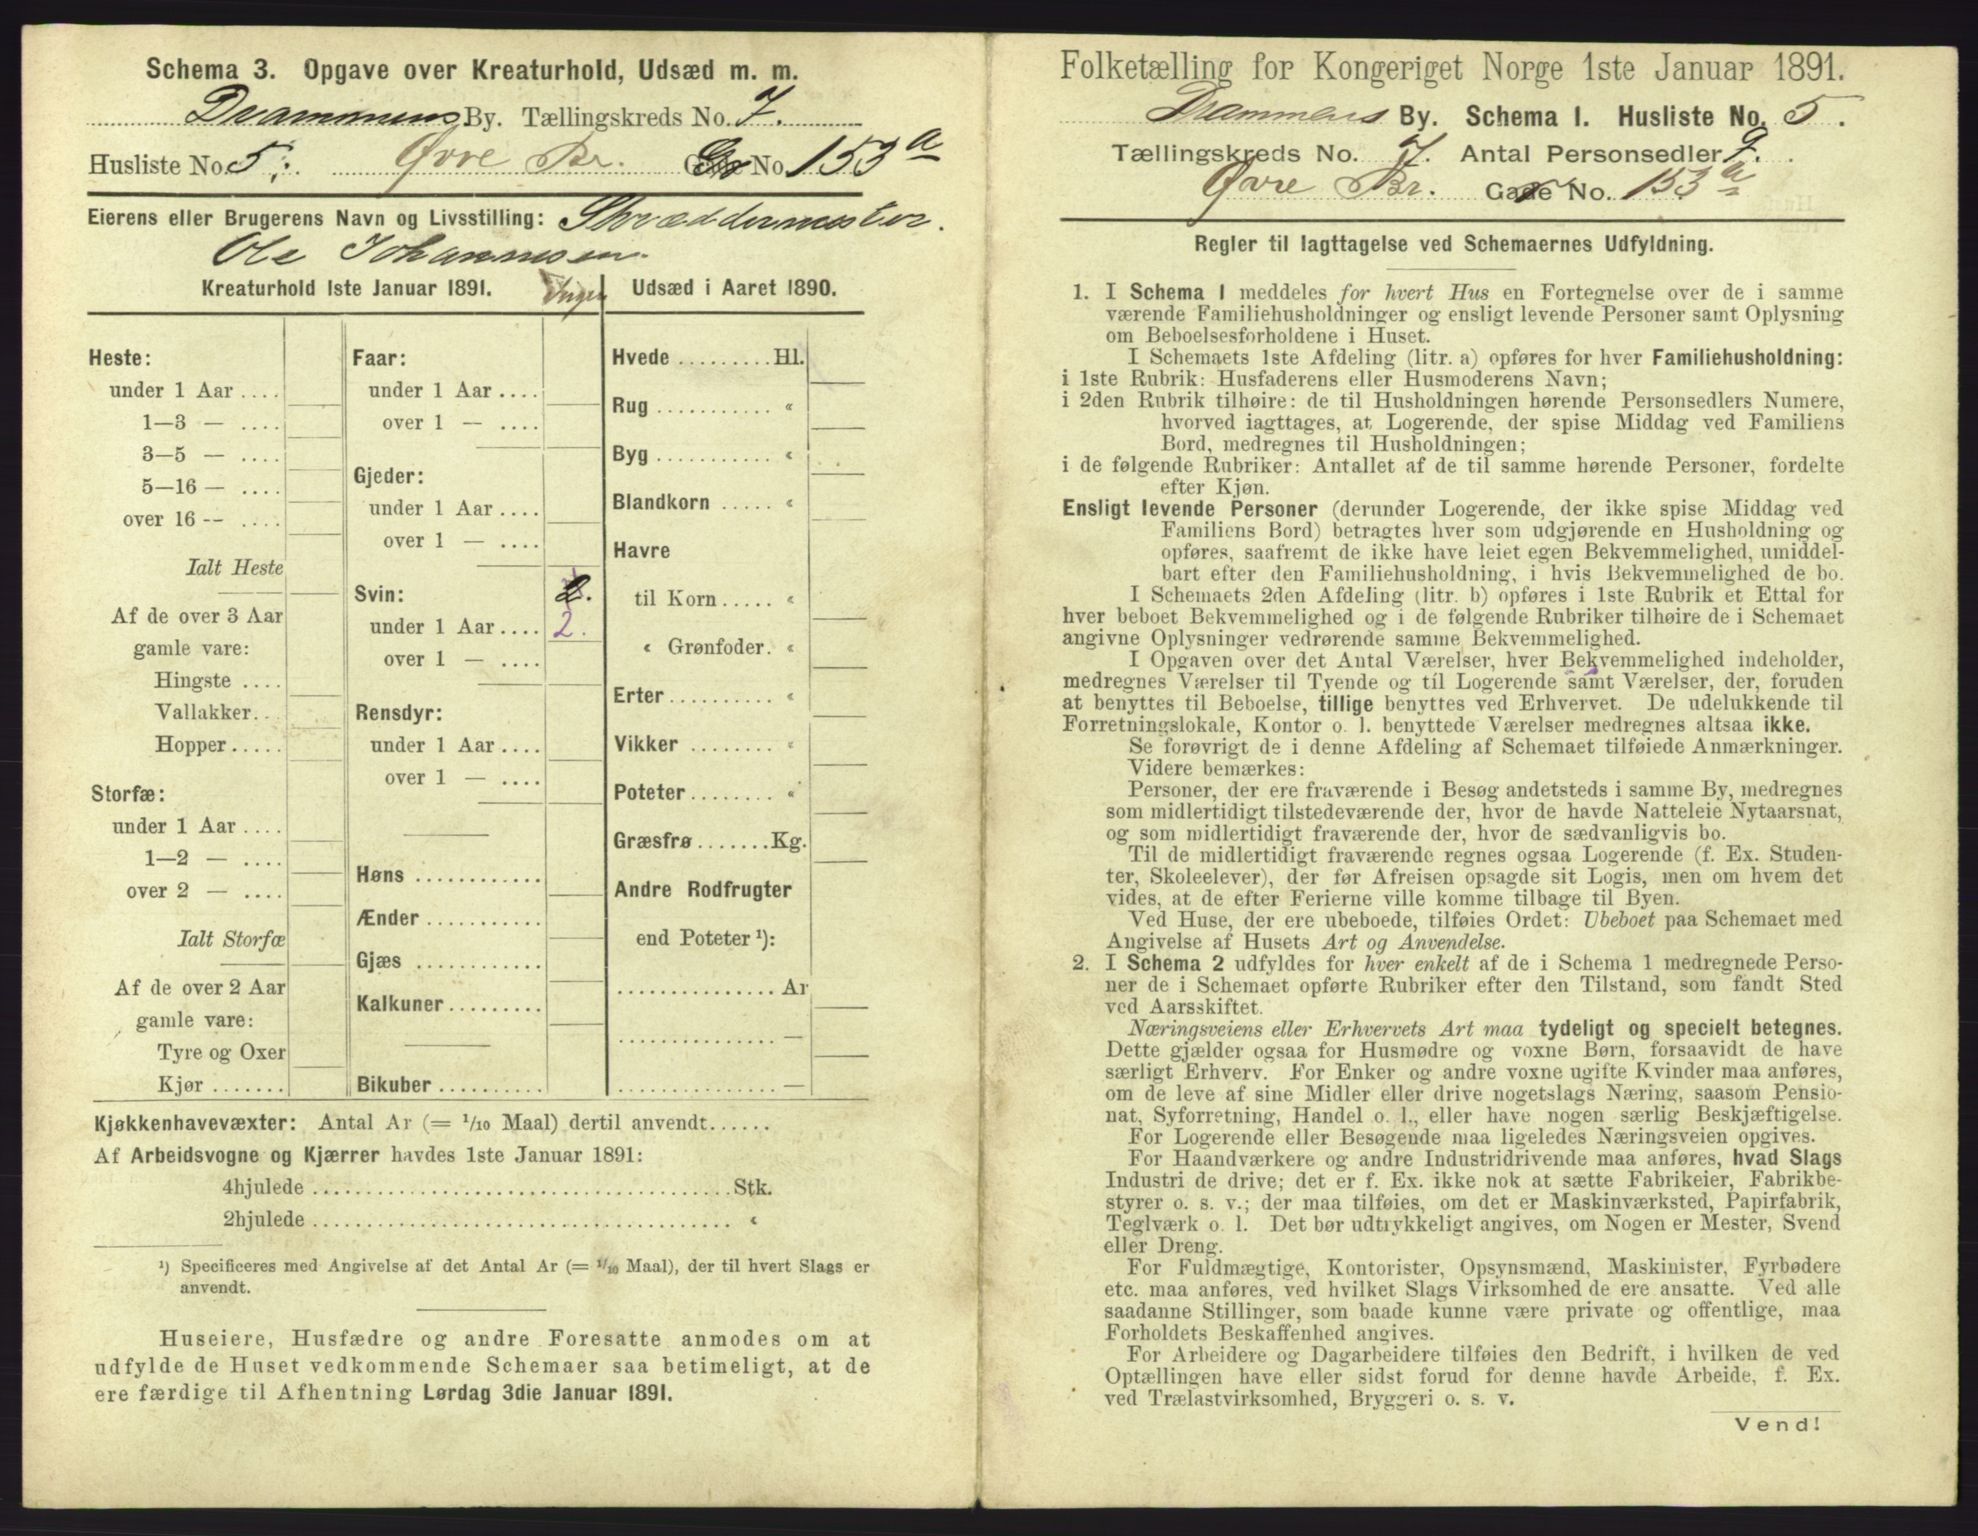 Schema 3. Opgave over Kreaturhold, Udsæd m. m.
Drammens By. Tællingskreds No. 7.
Husliste No. 5. Øvre Br. Gade No. 153 a
Eierens eller Brugerens Navn og Livsstilling: Skræddermester.
Ole Johannesen.
Kreaturhold 1ste Januar 1891. Ingen Udsæd i Aaret 1890.
Heste:
under 1 Aar ....
1—3 — ....
3—5 — ....
5—16 — ....
over 16 -- ....
Ialt Heste
Af de over 3 Aar
gamle vare:
Hingste ....
Vallakker..
Hopper.....
Storfæ:
under 1 Aar ....
1—2 — ....
over 2 — ....
Ialt Storfæ
Af de over 2 Aar
gamle vare:
Tyre og Oxer
Kjør .......
Faar:
under 1 Aar ....
over 1 — ....
Gjeder:
under 1 Aar ....
over 1 — ....
Svin: 2.
under 1 Aar .... 2.
over 1 — ....
Rensdyr:
under 1 Aar ....
over 1 — ....
Høns ............
Ænder ...........
Gjæs ............
Kalkuner.........
Bikuber ..........
Hvede .........Hl.
Rug ........... "
Byg ........... "
Blandkorn ..... "
Havre
til Korn ..... "
" Grønfoder. "
Erter.......... "
Vikker ........ "
Poteter........ "
Græsfrø.......Kg.
Andre Rodfrugter
end Poteter ¹):
............... Ar
............... —
............... —
Kjøkkenhavevæxter: Antal Ar (= 1/10 Maal) dertil anvendt......
Af Arbeidsvogne og Kjærrer havdes 1ste Januar 1891:
4hjulede ....................................... Stk.
2hjulede ....................................... "
¹) Specificeres med Angivelse af det Antal Ar (= 1/10 Maal), der til hvert Slags er
anvendt.
Huseiere, Husfædre og andre Foresatte anmodes om at
udfylde de Huset vedkommende Schemaer saa betimeligt, at de
ere færdige til Afhentning Lørdag 3die Januar 1891.
Folketælling for Kongeriget Norge 1ste Januar 1891.
Drammens By. Schema I. Husliste No. 5.
Tællingskreds No. 7. Antal Personsedler 9.
Øvre Br. Gade No. 153 a
Regler til Iagttagelse ved Schemaernes Udfyldning.
1. I Schema I meddeles for hvert Hus en Fortegnelse over de i samme
værende Familiehusholdninger og ensligt levende Personer samt Oplysning
om Beboelsesforholdene i Huset.
I Schemaets 1ste Afdeling (litr. a) opføres for hver Familiehusholdning:
i 1ste Rubrik: Husfaderens eller Husmoderens Navn;
i 2den Rubrik tilhøire: de til Husholdningen hørende Personsedlers Numere,
hvorved iagttages, at Logerende, der spise Middag ved Familiens
Bord, medregnes til Husholdningen;
i de følgende Rubriker: Antallet af de til samme hørende Personer, fordelte
efter Kjøn.
Ensligt levende Personer (derunder Logerende, der ikke spise Middag ved
Familiens Bord) betragtes hver som udgjørende en Husholdning og
opføres, saafremt de ikke have leiet egen Bekvemmelighed, umiddel-
bart efter den Familiehusholdning, i hvis Bekvemmelighed de bo.
I Schemaets 2den Afdeling (litr. b) opføres i 1ste Rubrik et Ettal for
hver beboet Bekvemmelighed og i de følgende Rubriker tilhøire de i Schemaet
angivne Oplysninger vedrørende samme Bekvemmelighed.
I Opgaven over det Antal Værelser, hver Bekvemmelighed indeholder,
medregnes Værelser til Tyende og til Logerende samt Værelser, der, foruden
at benyttes til Beboelse, tillige benyttes ved Erhvervet. De udelukkende til
Forretningslokale, Kontor o. l. benyttede Værelser medregnes altsaa ikke.
Se forøvrigt de i denne Afdeling af Schemaet tilføiede Anmærkninger.
Videre bemærkes:
Personer, der ere fraværende i Besøg andetsteds i samme By, medregnes
som midlertidigt tilstedeværende der, hvor de havde Natteleie Nytaarsnat,
og som midlertidigt fraværende der, hvor de sædvanligvis bo.
Til de midlertidigt fraværende regnes ogsaa Logerende (f. Ex. Studen-
ter, Skoleelever), der før Afreisen opsagde sit Logis, men om hvem det
vides, at de efter Ferierne ville komme tilbage til Byen.
Ved Huse, der ere ubeboede, tilføies Ordet: Ubeboet paa Schemaet med
Angivelse af Husets Art og Anvendelse.
2. I Schema 2 udfyldes for hver enkelt af de i Schema 1 medregnede Perso-
ner de i Schemaet opførte Rubriker efter den Tilstand, som fandt Sted
ved Aarsskiftet.
Næringsveiens eller Erhvervets Art maa tydeligt og specielt betegnes.
Dette gjælder ogsaa for Husmødre og voxne Børn, forsaavidt de have
særligt Erhverv. For Enker og andre voxne ugifte Kvinder maa anføres,
om de leve af sine Midler eller drive nogetslags Næring, saasom Pensio-
nat, Syforretning, Handel o. l., eller have nogen særlig Beskjæftigelse.
For Logerende eller Besøgende maa ligeledes Næringsveien opgives.
For Haandværkere og andre Industridrivende maa anføres, hvad Slags
Industri de drive; det er f. Ex. ikke nok at sætte Fabrikeier, Fabrikbe-
styrer o. s. v.; der maa tilføies, om det er Maskinværksted, Papirfabrik,
Teglværk o. l. Det bør udtrykkeligt angives, om Nogen er Mester, Svend
eller Dreng.
For Fuldmægtige, Kontorister, Opsynsmænd, Maskinister, Fyrbødere
etc. maa anføres, ved hvilket Slags Virksomhed de ere ansatte. Ved alle
saadanne Stillinger, som baade kunne være private og offentlige, maa
Forholdets Beskaffenhed angives.
For Arbeidere og Dagarbeidere tilføies den Bedrift, i hvilken de ved
Optællingen have eller sidst forud for denne havde Arbeide, f. Ex.
ved Trælastvirksomhed, Bryggeri o. s. v.
Vend!